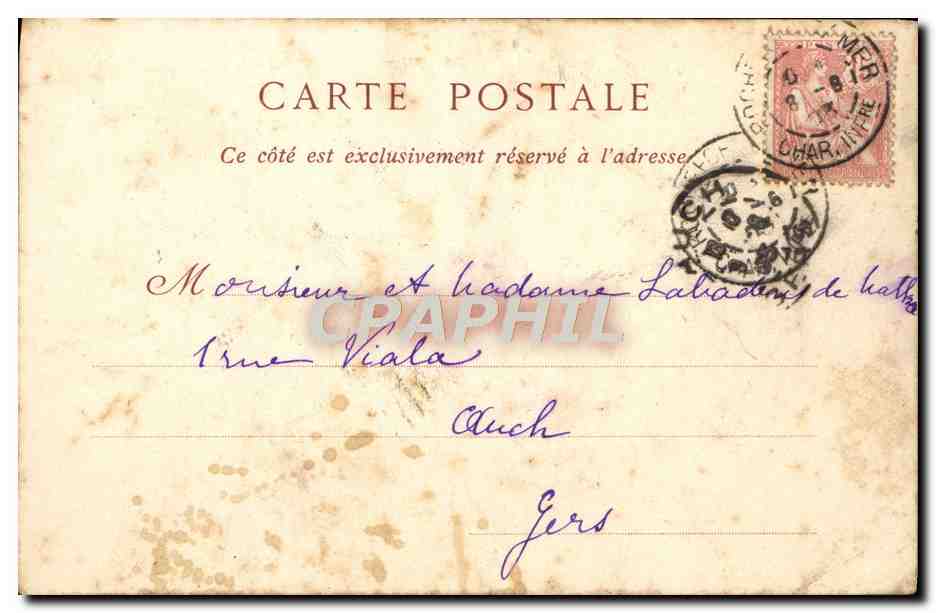 CARTE POSTALE
Ce côté est exclusivement réservé à l'adresse
MER
CHAR. INFRE
Monsieur et Madame Labadens de
CPAPHIL
1 rue Viala
Auch
Gers